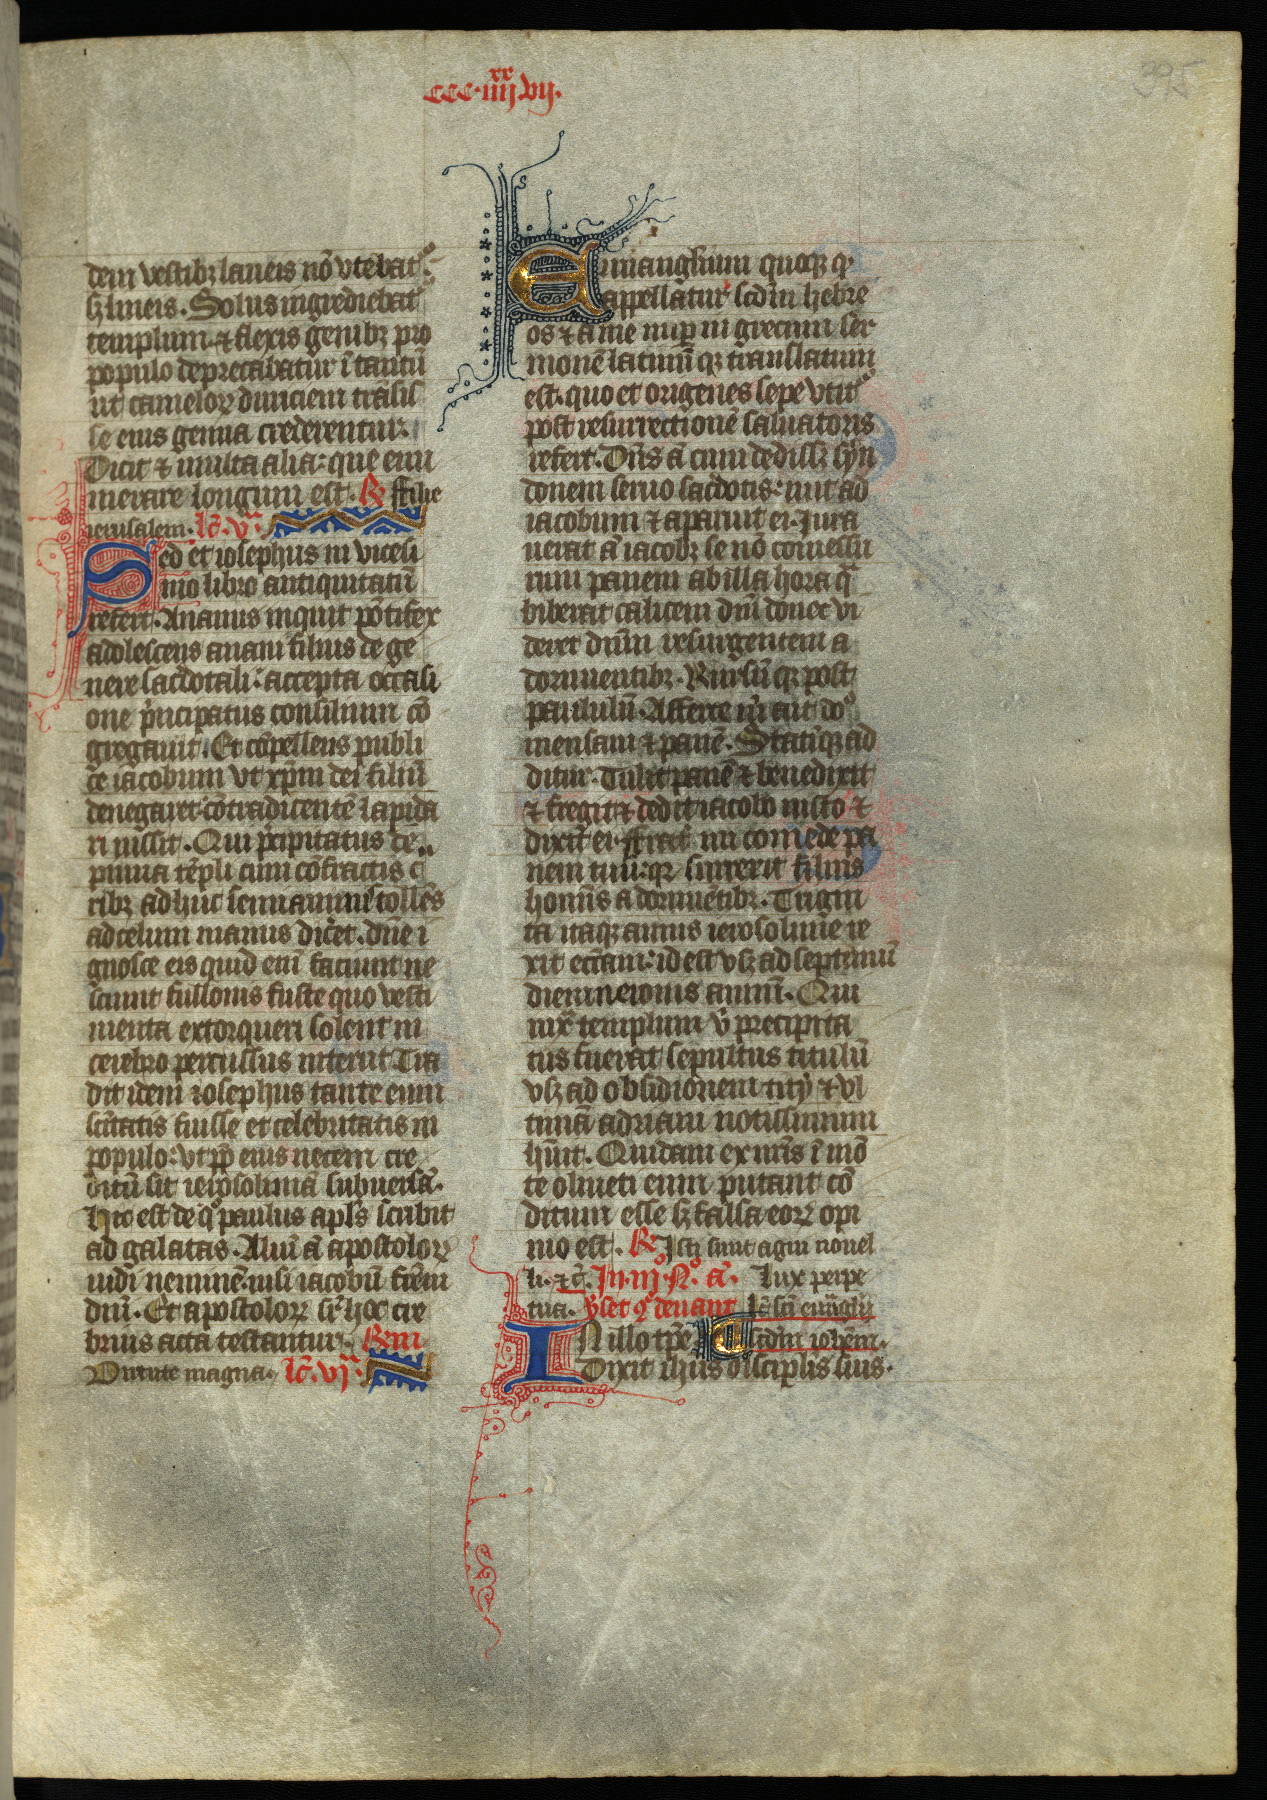 CCC·iiij·vij·
xx
395
dem vestibꝫ laneis nō vtebat᷑
sꝫ lineis. Solus ingrediebat᷑
templum ⁊ flexis genibꝫ pro
populo deprecabatur ī tantū
ut cameloꝝ duriciem trāsis
se eius genua crederentur.
Dicit ⁊ multa alia: que enu
merare longum est. ℟ ffilie
ierusalem. lc̄. vᵃ.
Sed et iosephus in vicesi
mo libro antiquitatū
refert. Ananus inquit pōtifex
adolescens anani filius de ge
nere sac̄dotali: accepta occasi
one p̄ncipatus consilium cō
gregauit. Et cōpellens publi
ce iacobum vt xp̄m dei filiū
denegaret cōtradicentē lapida
ri iussit. Qui p̄cipitatus de
pinna tēpli cum cōfractis c
ribꝫ adhuc semianimis tollēs
ad celum manus dic̄et. dn̄e i
gnosce eis quid enī faciunt ne
sciunt fullonis fuste quo vesti
menta extorqueri solent in
cerebro percussus interiit. Tra
dit idem iosephus tante eum
sc̄itatis fuisse et celebritatis in
populo: vt ꝓp̄ eius necem cre
ditū sit ierosolimā subuersā.
Hic est de qͦ paulus apl̄s scribit
ad galatas. Aliū ā apostoloꝝ
uidi neminē. nisi iacobū fr̄em
dn̄i. Et apostoloꝝ sr̄ hoc cre
brius acta testantur. ℟ In
Uirtute magna. lc̄. vjᵃ.
Euuangliuum quoqꝫ q
appellatur scd̄m hebre
os ⁊ a me nup̄ in grecum ser
monē latinūqꝫ translatum
est. quo et origenes sepe vtit᷑
post resurrectionē saluatoris
refert. Dn̄s ā cum dedissꝫ syn
donem seruo sac̄dotis: iuit ad
iacobum ⁊ aparuit ei. Jura
uerat ā iacobꝫ se nō comessu
rum panem ab illa hora qͣ
biberat calicem dn̄i donec vi
deret dn̄m resurgentem a
dormientibꝫ. Rursūqꝫ post
paululū. Afferte m̄ ait do
mensam ⁊ panē. Statiqꝫ ad
ditur. Tulit panē ⁊ benedixit
⁊ fregit ⁊ dedit iacobo iusto ⁊
dixit ei. ffrat᷑ mi comede pa
nem tuū: qꝫ surrexit filius
homīs a dormiētibꝫ. Trigin
ta itaqꝫ annis ierosolime re
xit ecc̄am: id est vsqꝫ ad septimū
diem neronis annū. Qui
iux̄ templum v̄ precipita
tus fuerat sepultus titulū
vsqꝫ ad obsidionem titij ⁊ vl
timā adriani notissimum
hūit. Quidam ex nr̄is ī mō
te oliueti eum putant cō
ditum esse sꝫ falsa eoꝝ opi
nio est. ℟ Isti sunt agni nouel
li. ⁊c̄. In. iijº. Nº. a᷑. Lux perpe
tua. v̄set qͦ denant lc̄ sc̄i euāglij
In illo tp̄e scdm ioh̄em.
Dixit ihūs discip̄lis suis.